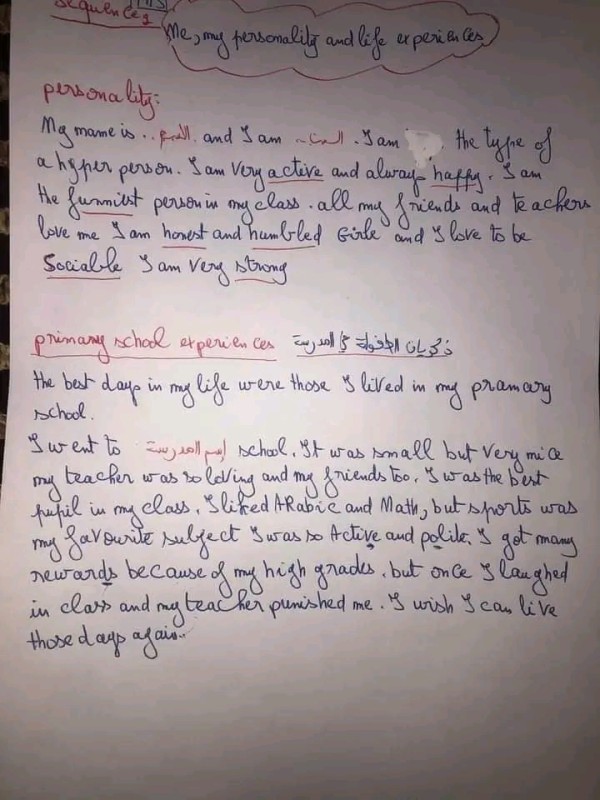 Sequence 1
MS
Me, my personality and life experiences
personality:
My name is .. and I am .. . I am the type of
a hyper person. I am very active and always happy. I am
the funniest person in my class. all my friends and teachers
love me I am honest and humbled Girle and I love to be
Sociable I am very strong
primary school experiences ذكريات الطفولة في المدرسة
the best days in my life were those I lived in my pramary
school.
I went to إسم المدرسة school. It was small but very nice
my teacher was so loving and my friends too. I was the best
pupil in my class. I liked ARabic and Math, but sports was
my favourite subject I was so Active and polite. I got many
rewards because of my high grades. but once I laughed
in class and my teacher punished me. I wish I can live
those days again..